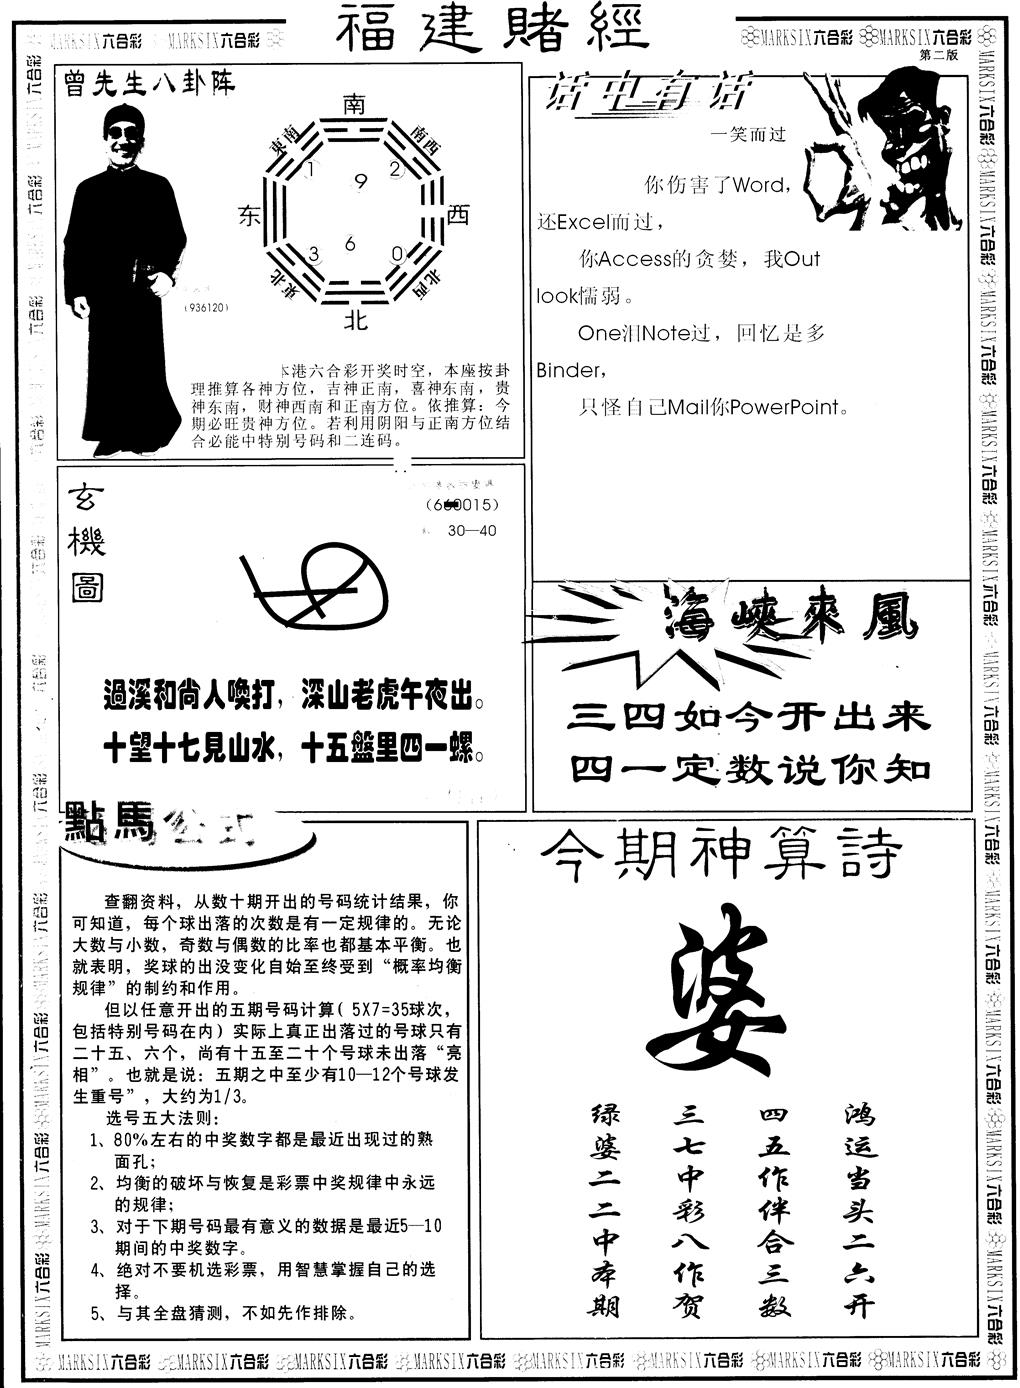 福建賭經
MARKSIX六合彩 MARKSIX六合彩
MARKSIX六合彩 MARKSIX六合彩
第二版
曾先生八卦阵
南
東南 南西
1 9 2
东 西
3 6 0
東北 北西
北
(936120)
本港六合彩开奖时空，本座按卦
理推算各神方位，吉神正南，喜神东南，贵
神东南，财神西南和正南方位。依推算：今
期必旺贵神方位。若利用阴阳与正南方位结
合必能中特别号码和二连码。
话中有话
一笑而过
你伤害了Word，
还Excel而过，
你Access的贪婪，我Out
look懦弱。
One泪Note过，回忆是多
Binder，
只怪自己Mail你PowerPoint。
玄機圖
30—40
過溪和尚人喚打，深山老虎午夜出。
十望十七見山水，十五盤里四一螺。
海峽來風
三四如今开出来
四一定数说你知
點馬公式
查翻资料，从数十期开出的号码统计结果，你
可知道，每个球出落的次数是有一定规律的。无论
大数与小数，奇数与偶数的比率也都基本平衡。也
就表明，奖球的出没变化自始至终受到“概率均衡
规律”的制约和作用。
但以任意开出的五期号码计算(5X7=35球次，
包括特别号码在内)实际上真正出落过的号球只有
二十五、六个，尚有十五至二十个号球未出落“亮
相”。也就是说：五期之中至少有10—12个号球发
生重号”，大约为1/3。
选号五大法则：
1、80%左右的中奖数字都是最近出现过的熟
面孔；
2、均衡的破坏与恢复是彩票中奖规律中永远
的规律；
3、对于下期号码最有意义的数据是最近5—10
期间的中奖数字。
4、绝对不要机选彩票，用智慧掌握自己的选
择。
5、与其全盘猜测，不如先作排除。
今期神算詩
婆
鸿运当头二六开
四五作伴合三数
三七中彩八作贺
绿婆二二中本期
MARKSIX六合彩 MARKSIX六合彩 MARKSIX六合彩 MARKSIX六合彩 MARKSIX六合彩 MARKSIX六合彩 MARKSIX六合彩 MARKSIX六合彩